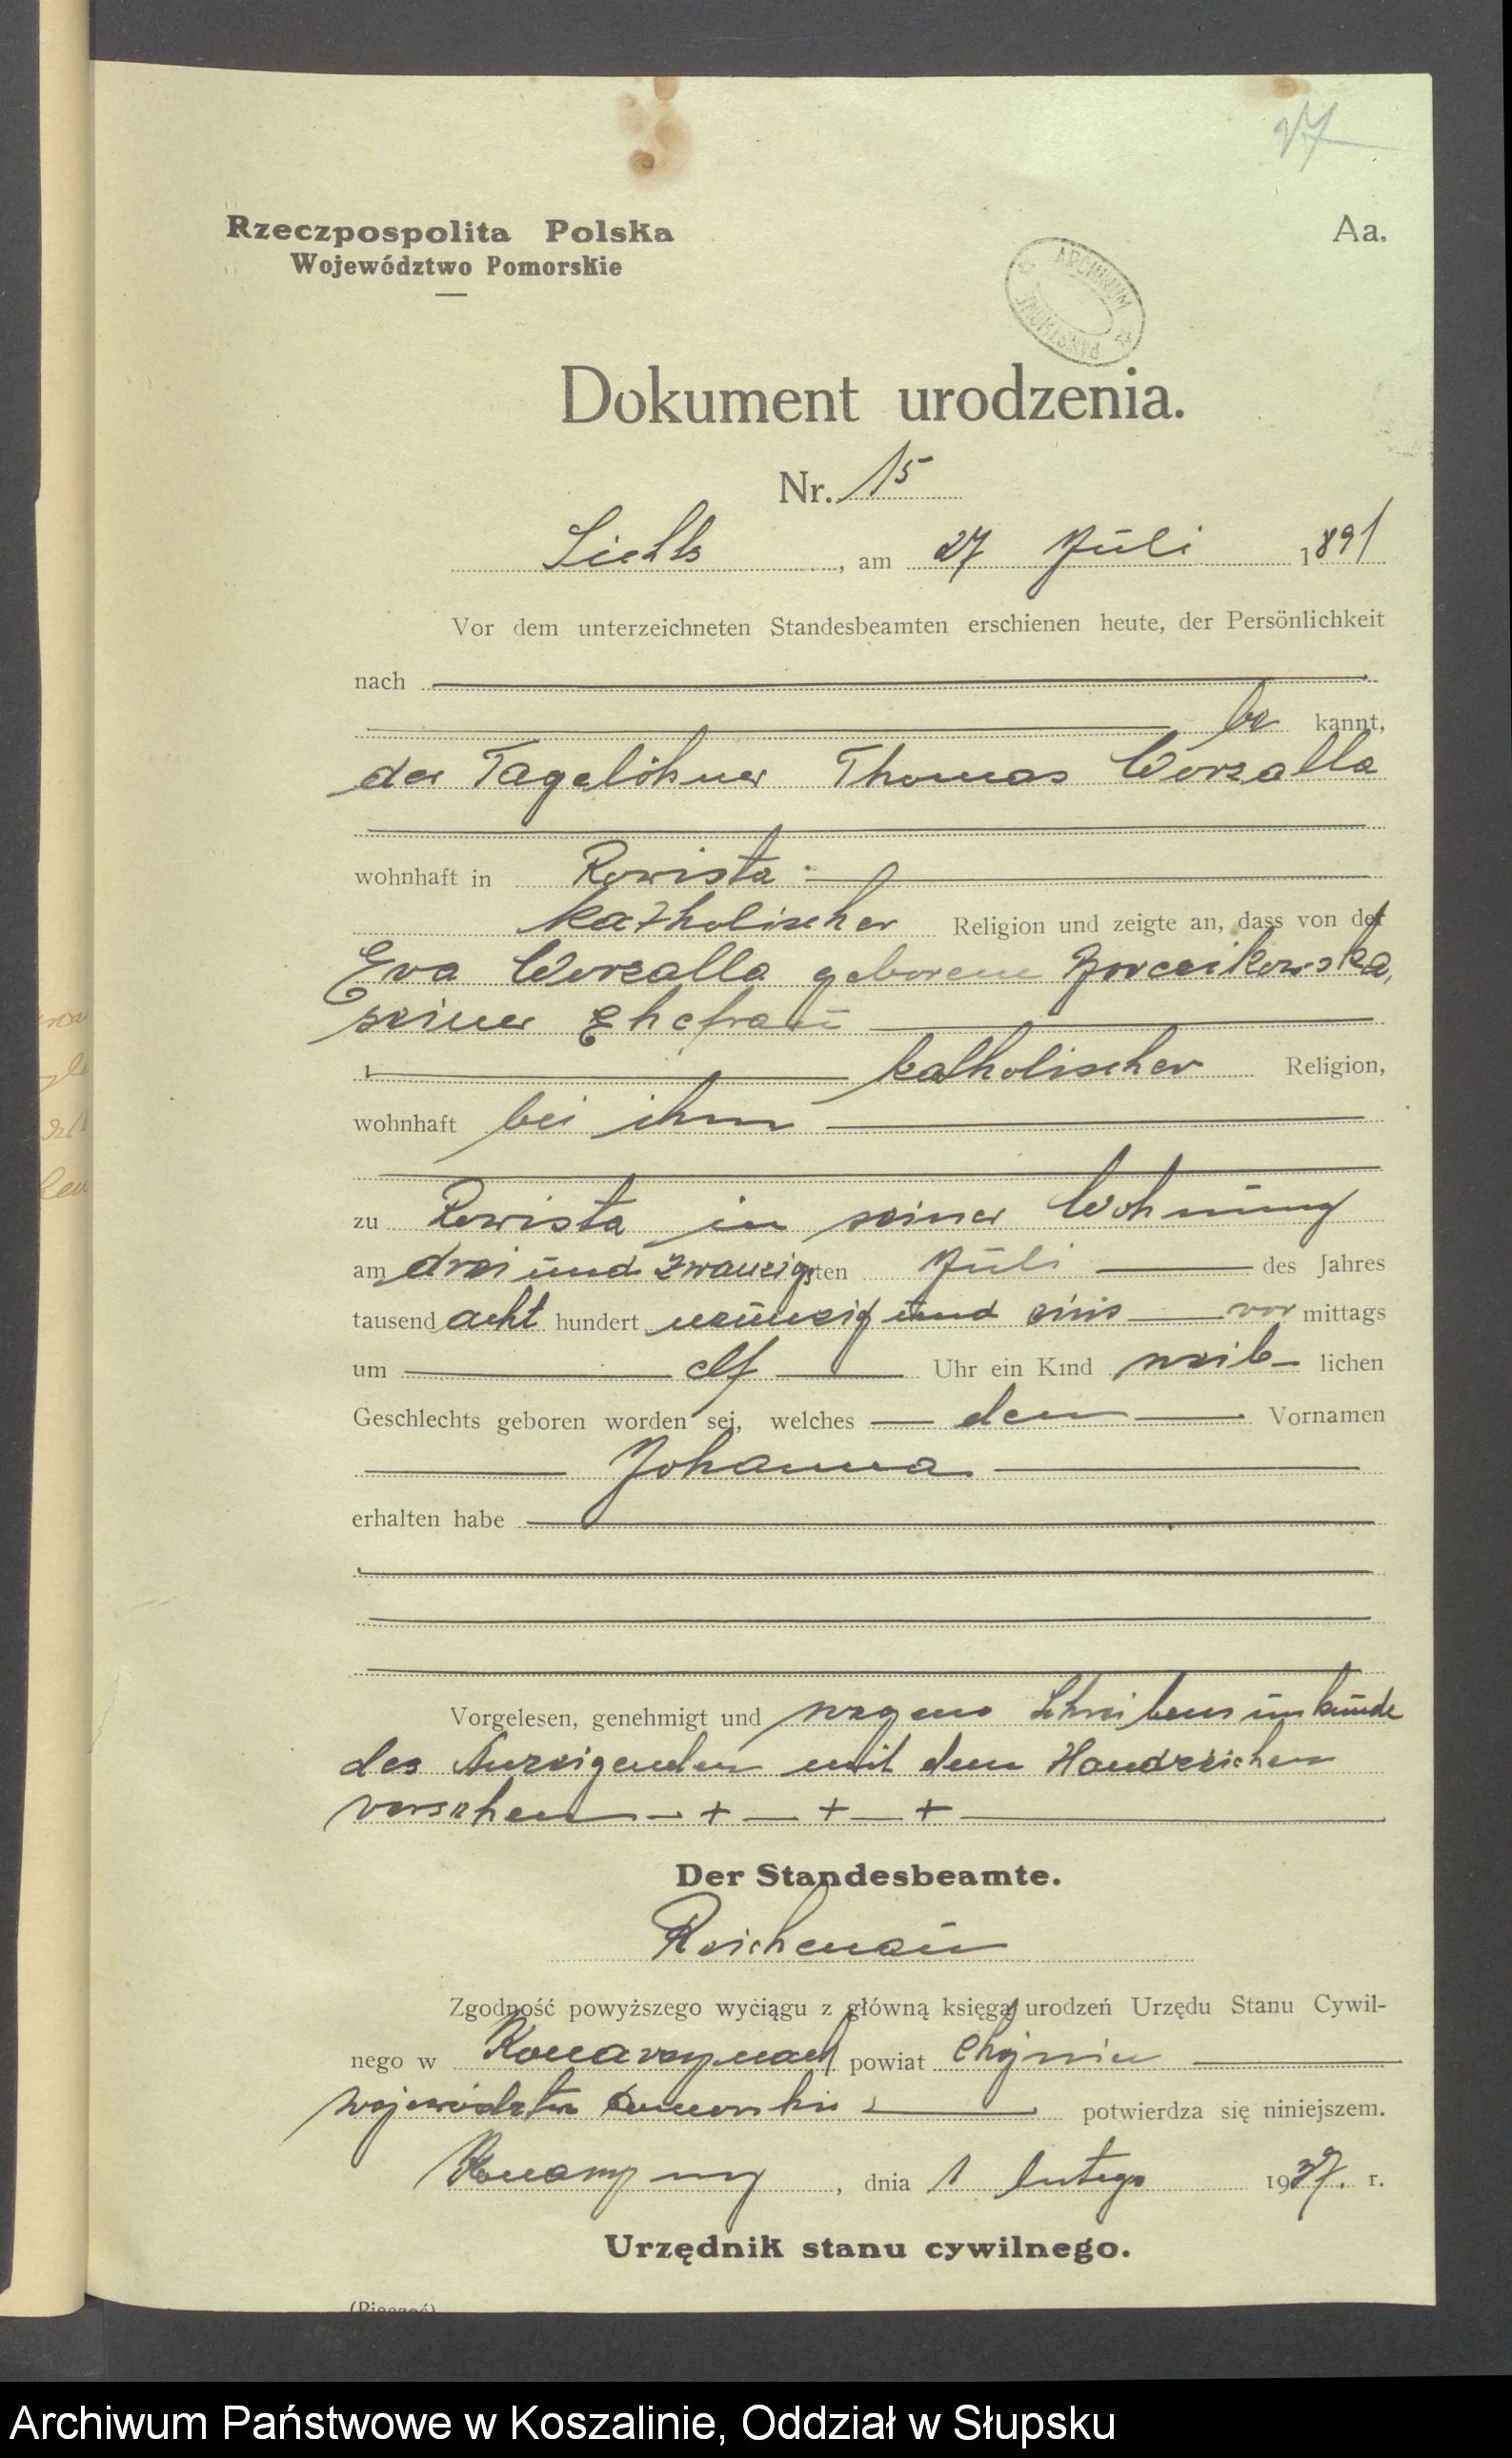 27
Rzeczpospolita Polska
Województwo Pomorskie
Aa.
ARCHIWUM PAŃSTWOWE
Dokument urodzenia.
Nr. 15
, am 27 Juli 1891
Vor dem unterzeichneten Standesbeamten erschienen heute, der Persönlichkeit
nach
be kannt,
der Tagelöhner Thomas Worzalla
wohnhaft in Rowista
katholischer Religion und zeigte an, dass von der
Eva Worzalla geborene
seiner Ehefrau
katholischer Religion,
wohnhaft bei ihm
zu Rowista in seiner Wohnung
am drei und zwanzigsten Juli des Jahres
tausend acht hundert neunzig und eins vor mittags
um elf Uhr ein Kind weib- lichen
Geschlechts geboren worden sei, welches den Vornamen
Johanna
erhalten habe
Vorgelesen, genehmigt und wegens Schreibensunkunde
des Anzeigenden mit dem Handzeichen
versehen - + - + - +
Der Standesbeamte.
Reichenau
Zgodność powyższego wyciągu z główną księgą urodzeń Urzędu Stanu Cywil-
nego w Konarzynach powiat Chojnice
województwo pomorskie potwierdza się niniejszem.
Konarzyny, dnia 1 lutego 1937. r.
Urzędnik stanu cywilnego.
(Pieczęć)
Archiwum Państwowe w Koszalinie, Oddział w Słupsku